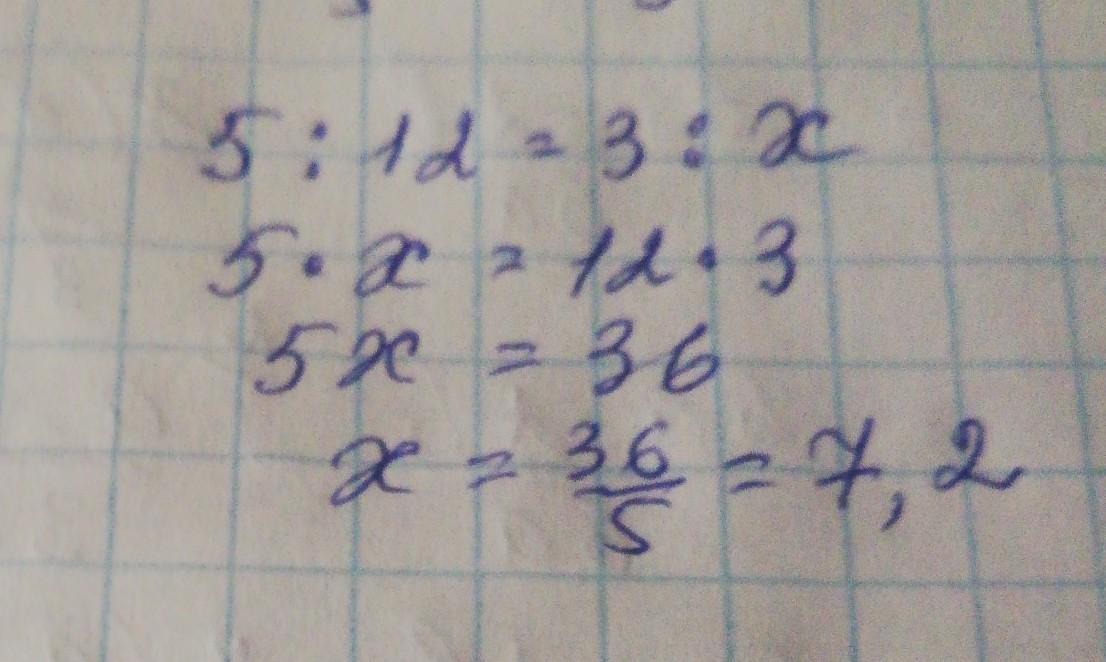 5 : 12 = 3 : x
5 · x = 12 · 3
5x = 36
x = 36/5 = 7,2